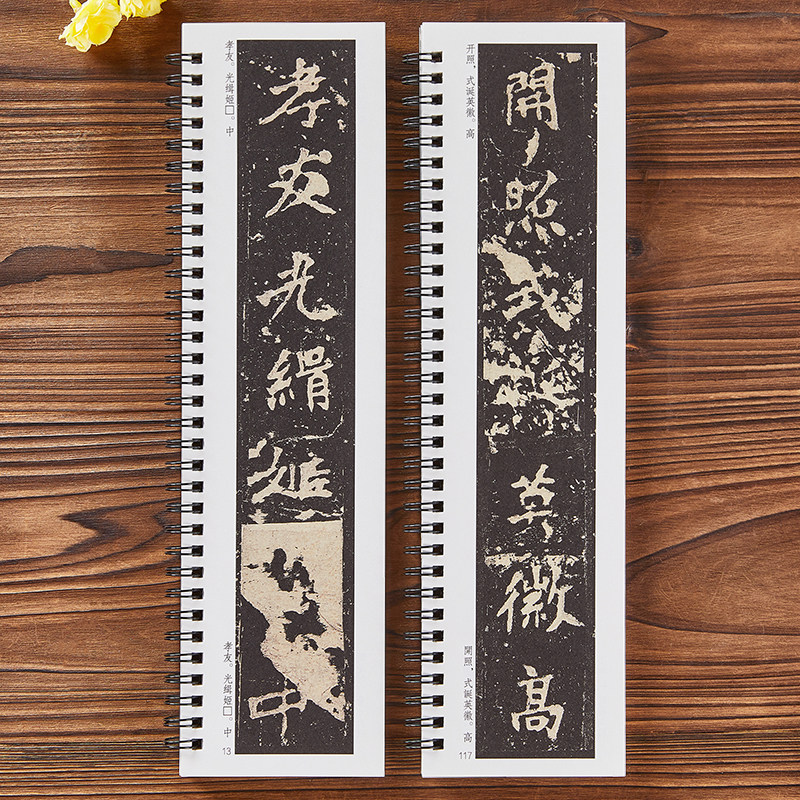 孝友。光缉姬□。中
孝友光緝姬
中
孝友。光緝姬□。中
13
开照，式诞英徽。高
開照式
英徽高
開照，式誕英徽。高
117